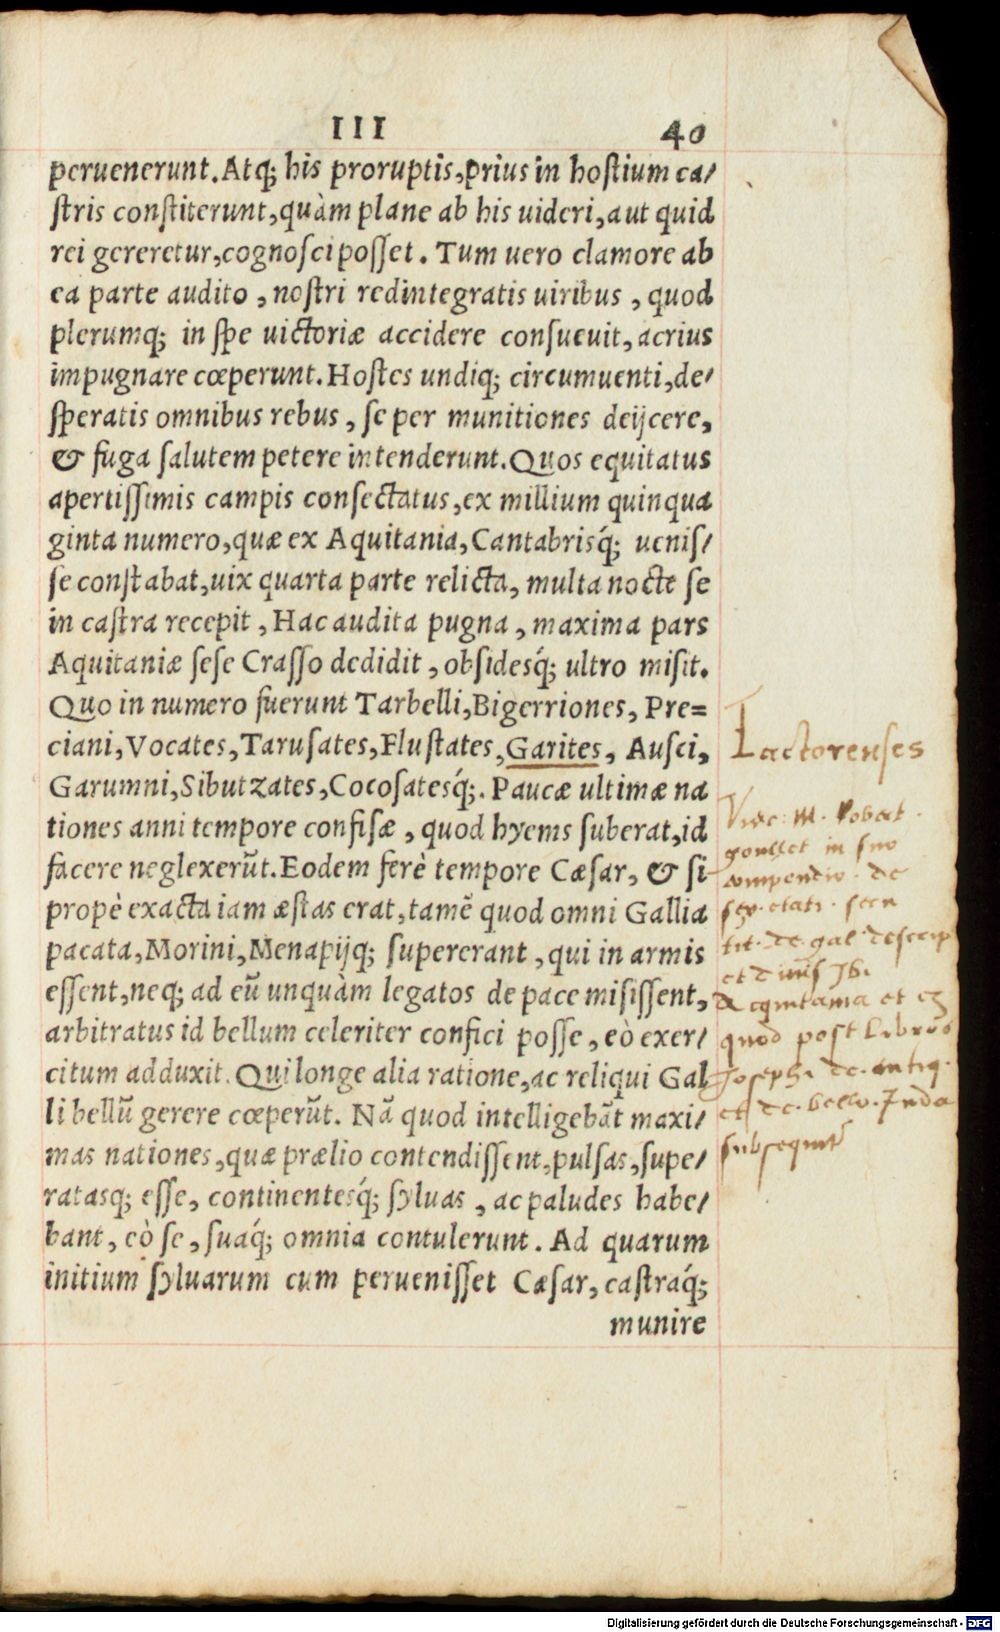 III 40
peruenerunt. Atq; his proruptis, prius in hostium ca/
stris constiterunt, quàm plane ab his uideri, aut quid
rei gereretur, cognosci posset. Tum uero clamore ab
ea parte audito, nostri redintegratis uiribus, quod
plerumq; in spe uictoriæ accidere consueuit, acrius
impugnare cœperunt. Hostes undiq; circumuenti, de/
speratis omnibus rebus, se per munitiones deijcere,
& fuga salutem petere intenderunt. Quos equitatus
apertissimis campis consectatus, ex millium quinqua
ginta numero, quæ ex Aquitania, Cantabrisq́; uenis/
se constabat, uix quarta parte relicta, multa nocte se
in castra recepit, Hac audita pugna, maxima pars
Aquitaniæ sese Crasso dedidit, obsidesq́; ultro misit.
Quo in numero fuerunt Tarbelli, Bigerriones, Pre=
ciani, Vocates, Tarusates, Flustates, Garites, Ausci,
Garumni, Sibutzates, Cocosatesq́;. Paucæ ultimæ na
tiones anni tempore confisæ, quod hyems suberat, id
facere neglexerũt. Eodem ferè tempore Cæsar, & si
propè exacta iam æstas erat, tamẽ quod omni Gallia
pacata, Morini, Menapijq; supererant, qui in armis
essent, neq; ad eũ unquàm legatos de pace misissent,
arbitratus id bellum celeriter confici posse, eò exer/
citum adduxit. Qui longe alia ratione, ac reliqui Gal
li bellũ gerere cœperũt. Nã quod intelligebãt maxi/
mas nationes, quæ prælio contendissent, pulsas, supe/
ratasq; esse, continentesq́; syluas, ac paludes habe/
bant, eò se, suaq́; omnia contulerunt. Ad quarum
initium syluarum cum peruenisset Cæsar, castraq́;
munire
Lactorenses
Vide: M. Robert.
goullet in suo
compendio. de
etati.
tit. de gal descrip
et
et
quod post Libros
Josephi de. antiq.
et de. bello. Juda